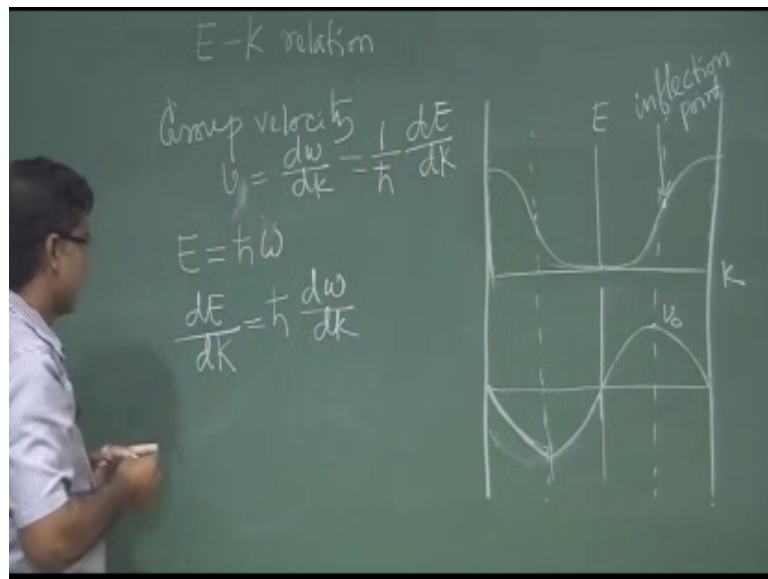 E-K relation
Group velocity
v = dω/dk = 1/ħ dE/dK
E = ħω
dE/dK = ħ dω/dk
E
inflection
point
K
v₀